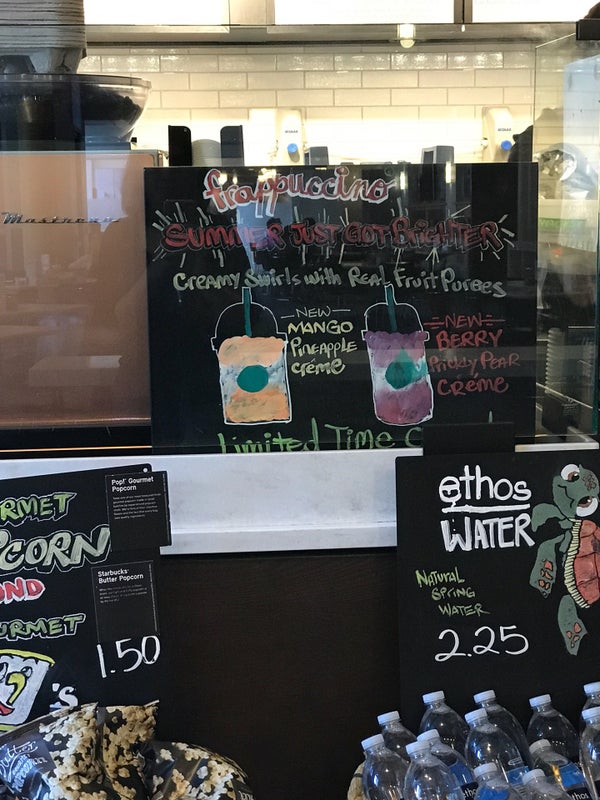 Mastrena
frappuccino
SUMMER JUST GOT BRIGHTER
Creamy Swirls with Real Fruit Purees
NEW
MANGO
Pineapple
créme
NEW
BERRY
Prickly Pear
Créme
Limited Time
RMET
CORN
ND
URMET
'S
1.50
Pop! Gourmet
Popcorn
Starbucks
Butter Popcorn
ethos
WATER
NATURAL
SPRING
WATER
2.25